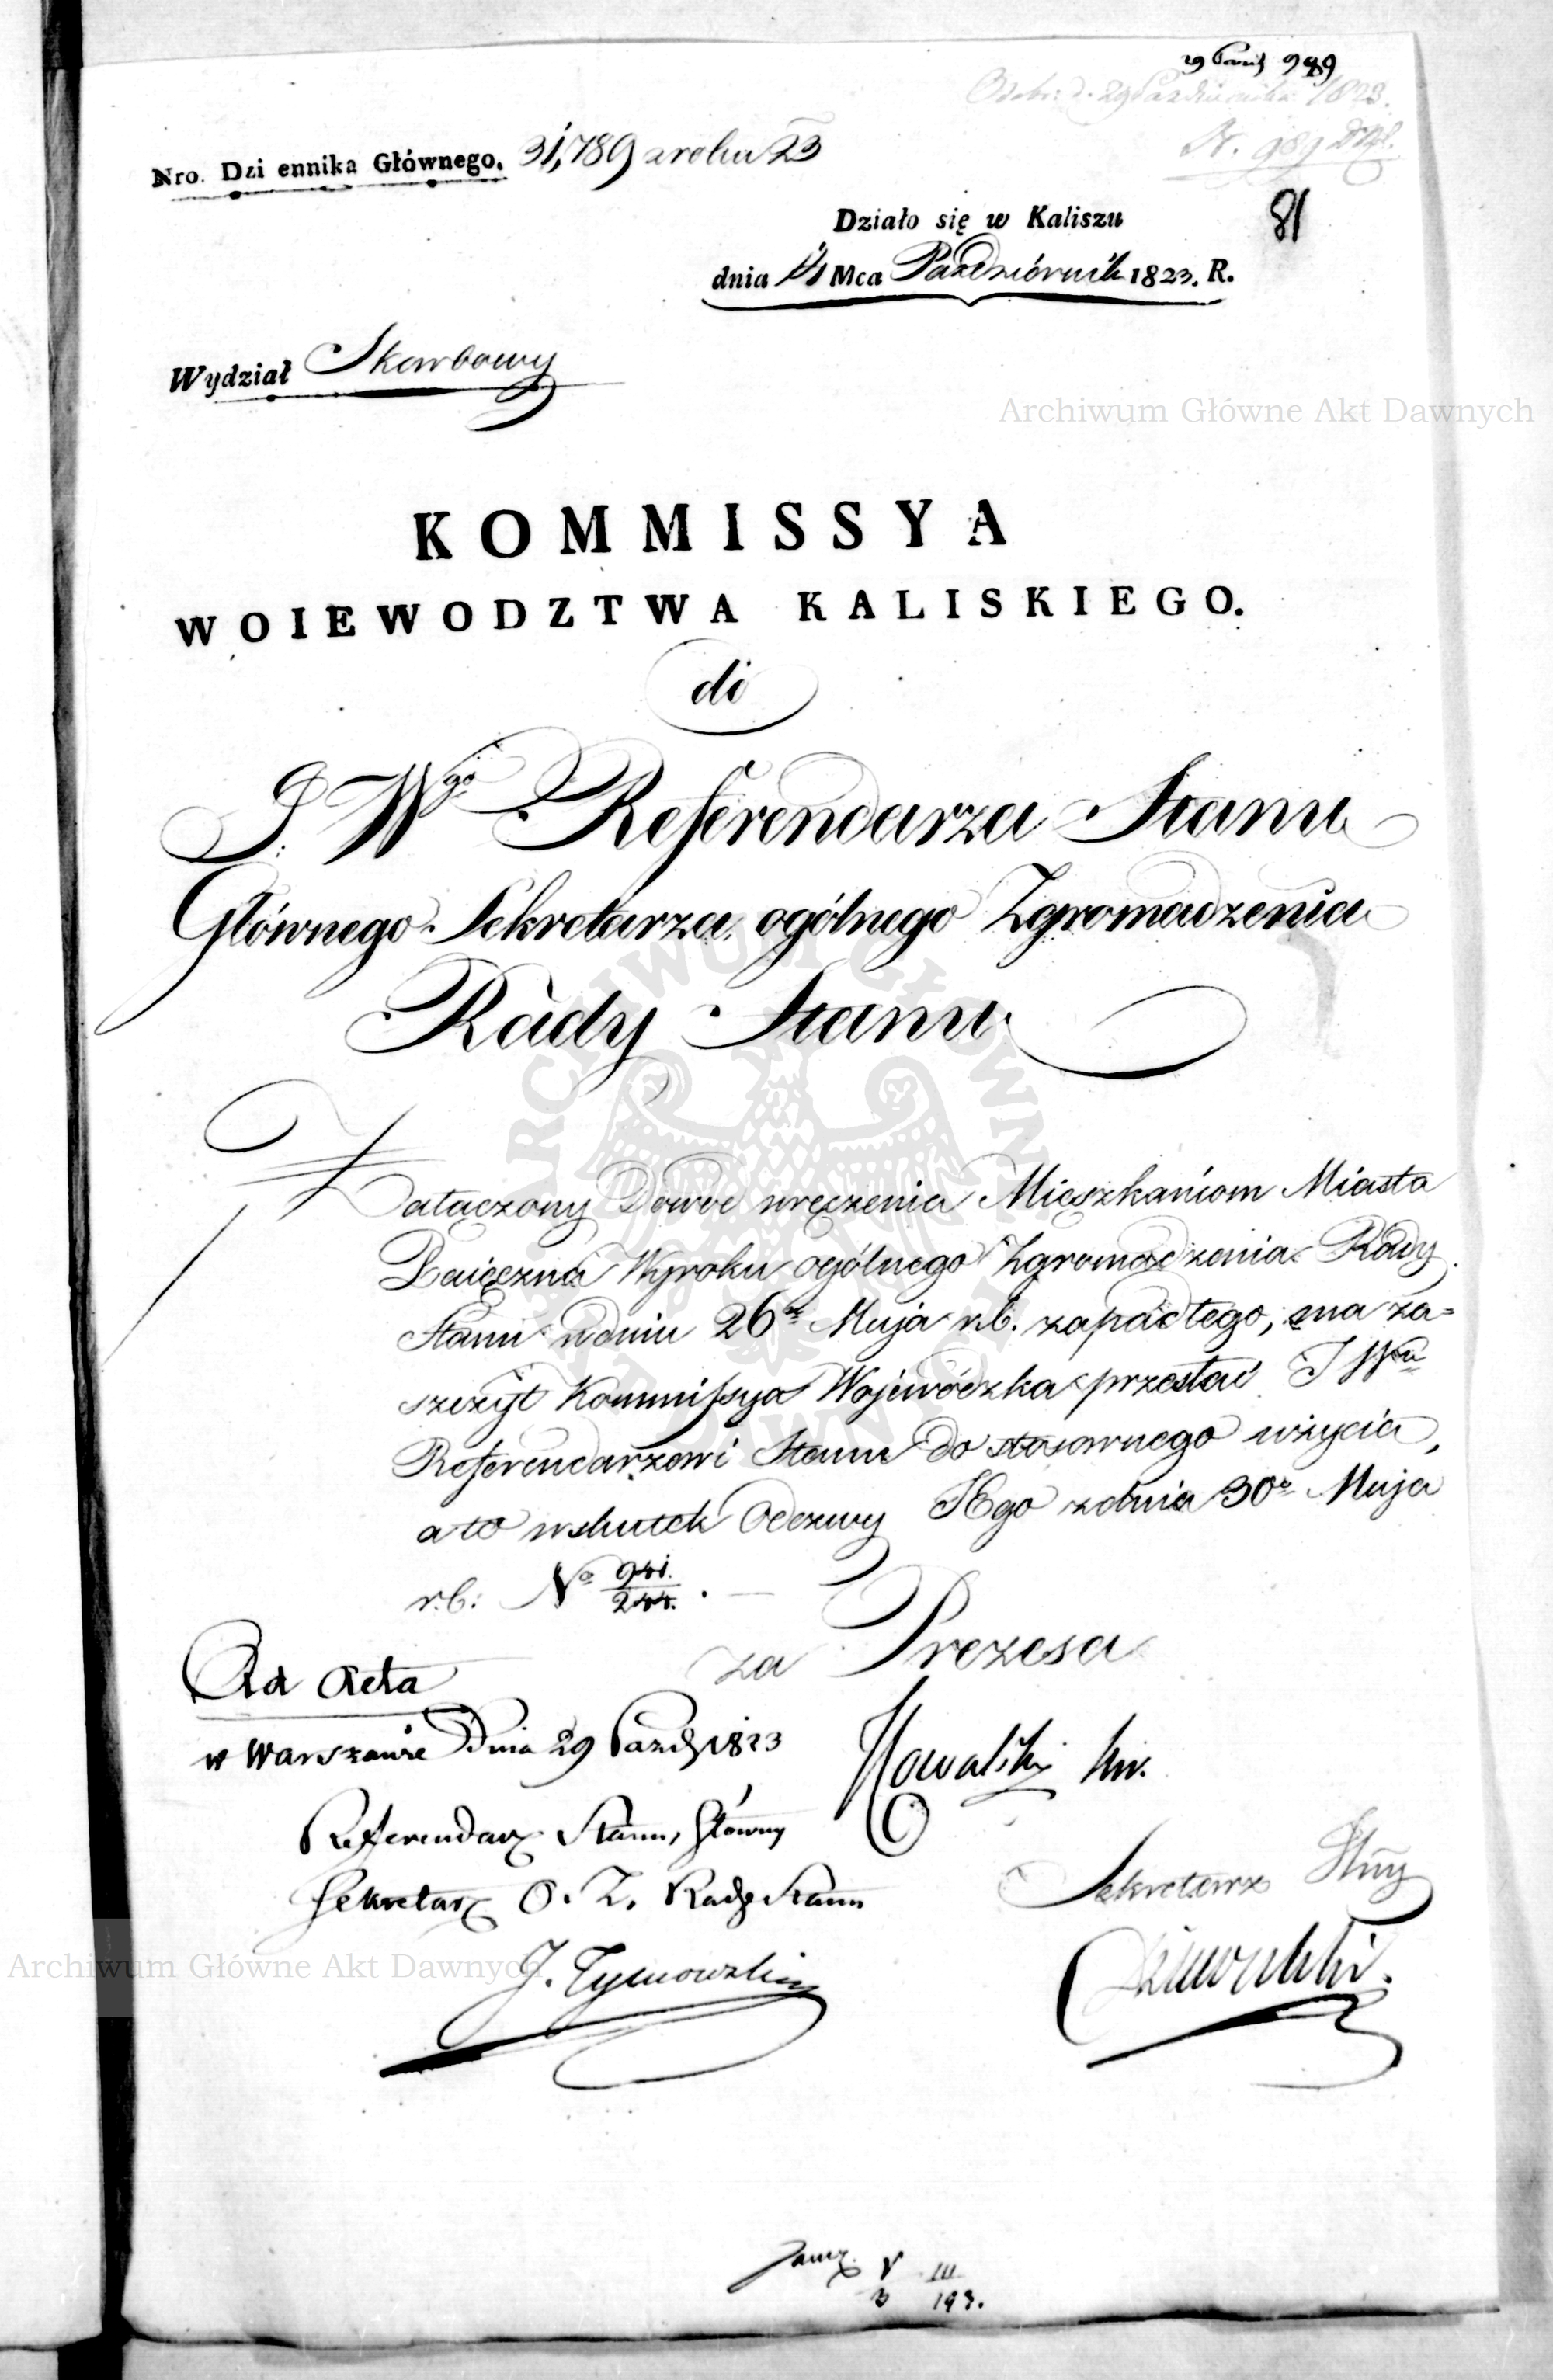 29 Paźd 989
Odebr: d. 29 Października 1823.
N. 989 Dzgł.
Nro. Dzi ennika Głównego. 31,789 z roku 23
81
Działo się w Kaliszu
dnia Mca Październik 1823. R.
Wydział Skarbowy
Archiwum Główne Akt Dawnych
KOMMISSYA
WOIEWODZTWA KALISKIEGO.
do
J. Wgo Referendarza Stanu
Głównego Sekretarza ogólnego Zgromadzenia
Rady Stanu
Załączony Dowód wręczenia Mieszkańcom Miasta
Paięczna Wyroku ogólnego Zgromadzenia Rady
Stanu w dniu 26o Maja r.b. zapadłego, ma za=
szczyt Kommissya Wojewódzka przesłać J Wu
Referendarzowi Stanu do stosownego użycia,
a to wskutek Odezwy JEgo z dnia 30o Maja
r.b: No 941./244. —
za Prezesa
Ad Acta
w Warszawie Dnia 29 Paźdz 1823
Kowalski
Referendarz Stanu, Główny
Sekretarz O. Z. Rady Stanu
Sekretarz Jlny
Archiwum Główne Akt Dawnych
J. Tymowski
V III
3 193.
ARCHIWUM GŁÓWNE AKT DAWNYCH